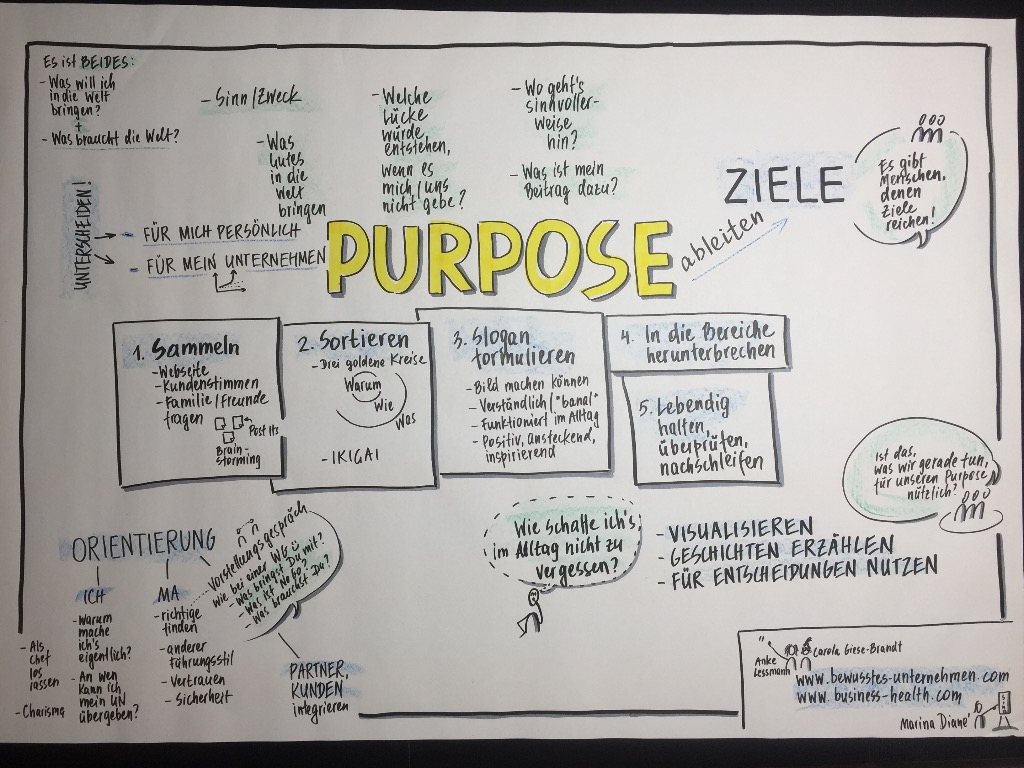 Es ist BEIDES:
- Was will ich
in die Welt
bringen?
+
- Was braucht die Welt?
- Sinn/Zweck
- Was
Gutes
in die
Welt
bringen
- Welche
Lücke
würde
entstehen,
wenn es
mich/uns
nicht gebe?
- Wo geht's
sinnvoller-
weise
hin?
- Was ist mein
Beitrag dazu?
ZIELE
Es gibt
Menschen,
denen
Ziele
reichen!
UNTERSCHEIDEN!
- FÜR MICH PERSÖNLICH
- FÜR MEIN UNTERNEHMEN
PURPOSE
ableiten
1. Sammeln
- Webseite
- Kundenstimmen
- Familie/Freunde
fragen
Post Its
Brain-
storming
2. Sortieren
- Drei goldene Kreise
Warum
Wie
Was
- IKIGAI
3. Slogan
formulieren
- Bild machen können
- Verständlich/"banal"
- Funktioniert im Alltag
- Positiv, ansteckend,
inspirierend
4. In die Bereiche
herunterbrechen
5. Lebendig
halten,
überprüfen,
nachschleifen
Ist das,
was wir gerade tun,
für unseren Purpose
nützlich?
ORIENTIERUNG
ICH
- Warum
mache
ich's
eigentlich?
- An wen
kann ich
mein UN
übergeben?
- Als
Chef
los
lassen
- Charisma
MA
- richtige
finden
- anderer
Führungsstil
- Vertrauen
- Sicherheit
Vorstellungsgespräch
wie bei einer WG
- Was bringst Du mit?
- Was ist No Go?
- Was brauchst Du?
PARTNER,
KUNDEN
integrieren
Wie schaffe ich's,
im Alltag nicht zu
vergessen?
- VISUALISIEREN
- GESCHICHTEN ERZÄHLEN
- FÜR ENTSCHEIDUNGEN NUTZEN
Anke
Lessmann
Carola Giese-Brandt
www.bewusstes-unternehmen.com
www.business-health.com
Marina Diané